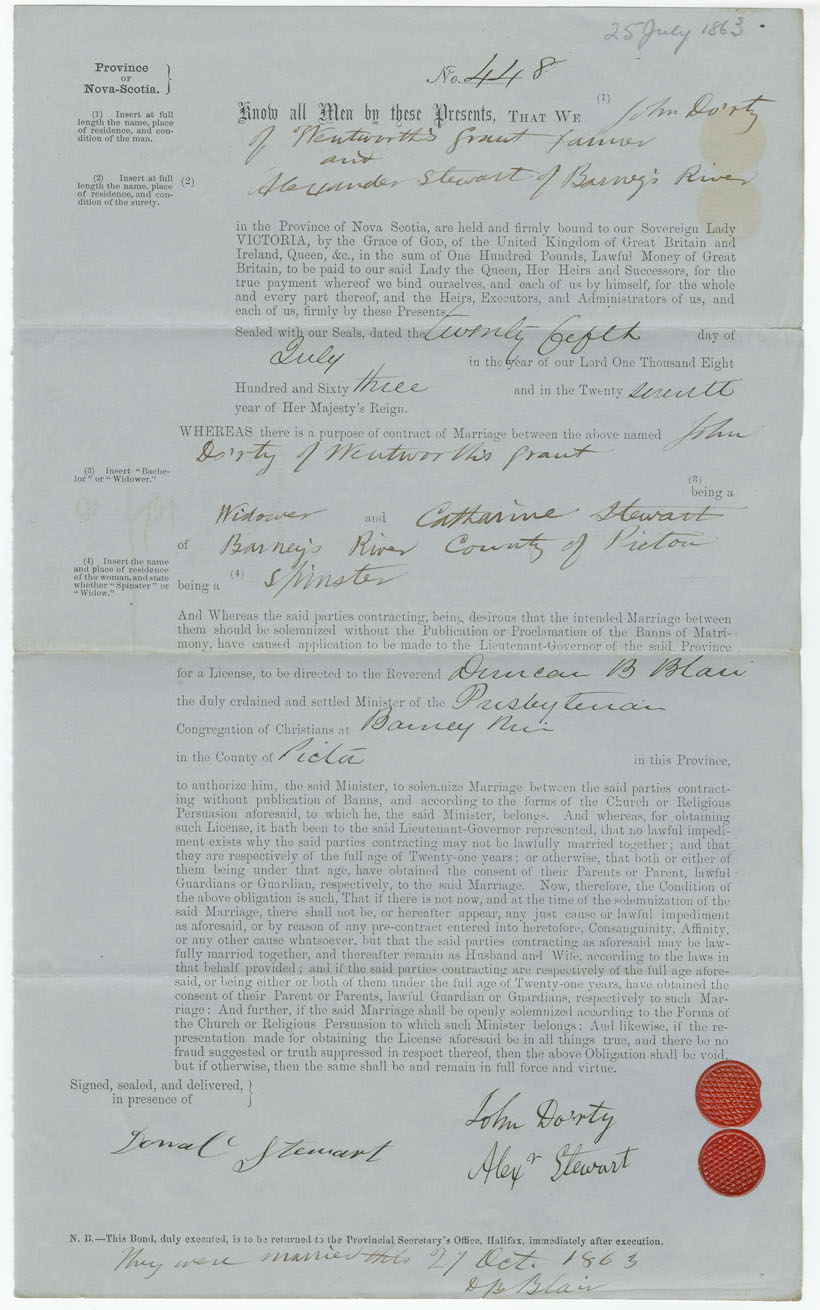 25 July 1863
Province
OF
Nova-Scotia.
No. 448
(1) Insert at full
length the name, place
of residence, and con-
dition of the man.
Know all Men by these Presents, THAT WE (1) John Do'rty
of Wentworth's grant Farmer
and
(2) Insert at full
length the name, place
of residence, and con-
dition of the surety.
(2) Alexander Stewart of Barney's River
in the Province of Nova Scotia, are held and firmly bound to our Sovereign Lady
VICTORIA, by the Grace of GOD, of the United Kingdom of Great Britain and
Ireland, Queen, &c., in the sum of One Hundred Pounds, Lawful Money of Great
Britain, to be paid to our said Lady the Queen, Her Heirs and Successors, for the
true payment whereof we bind ourselves, and each of us by himself, for the whole
and every part thereof, and the Heirs, Executors, and Administrators of us, and
each of us, firmly by these Presents.
Sealed with our Seals, dated the twenty fifth day of
July in the year of our Lord One Thousand Eight
Hundred and Sixty three and in the Twenty seventh
year of Her Majesty's Reign.
WHEREAS there is a purpose of contract of Marriage between the above named John
Do'rty of Wentworth's grant
(3) Insert "Bache-
lor" or "Widower."
(3)
being a
Widower and Catharine Stewart
of Barney's River County of Pictou
(4) Insert the name
and place of residence
of the woman, and state
whether "Spinster" or
"Widow."
being a (4) Spinster
And Whereas the said parties contracting, being desirous that the intended Marriage between
them should be solemnized without the Publication or Proclamation of the Banns of Matri-
mony, have caused application to be made to the Lieutenant-Governor of the said Province
for a License, to be directed to the Reverend Duncan B Blair
the duly ordained and settled Minister of the Presbyterian
Congregation of Christians at Barney Riv
in the County of Picto in this Province,
to authorize him, the said Minister, to solemnize Marriage between the said parties contract-
ing without publication of Banns, and according to the forms of the Church or Religious
Persuasion aforesaid, to which he, the said Minister, belongs. And whereas, for obtaining
such License, it hath been to the said Lieutenant-Governor represented, that no lawful impedi-
ment exists why the said parties contracting may not be lawfully married together; and that
they are respectively of the full age of Twenty-one years; or otherwise, that both or either of
them being under that age, have obtained the consent of their Parents or Parent, lawful
Guardians or Guardian, respectively, to the said Marriage. Now, therefore, the Condition of
the above obligation is such, That if there is not now, and at the time of the solemnization of the
said Marriage, there shall not be, or hereafter appear, any just cause or lawful impediment
as aforesaid, or by reason of any pre-contract entered into heretofore, Consanguinity, Affinity,
or any other cause whatsoever, but that the said parties contracting as aforesaid may be law-
fully married together, and thereafter remain as Husband and Wife, according to the laws in
that behalf provided; and if the said parties contracting are respectively of the full age afore-
said, or being either or both of them under the full age of Twenty-one years, have obtained the
consent of their Parent or Parents, lawful Guardian or Guardians, respectively to such Mar-
riage: And further, if the said Marriage shall be openly solemnized according to the Forms of
the Church or Religious Persuasion to which such Minister belongs: And likewise, if the re-
presentation made for obtaining the License aforesaid be in all things true, and there be no
fraud suggested or truth suppressed in respect thereof, then the above Obligation shall be void,
but if otherwise, then the same shall be and remain in full force and virtue.
Signed, sealed, and delivered,
in presence of
John Do'rty
Donald Stewart
Alexr Stewart
N. B.—This Bond, duly executed, is to be returned to the Provincial Secretary's Office, Halifax, immediately after execution.
They were married this 27 Oct. 1863
DB Blair